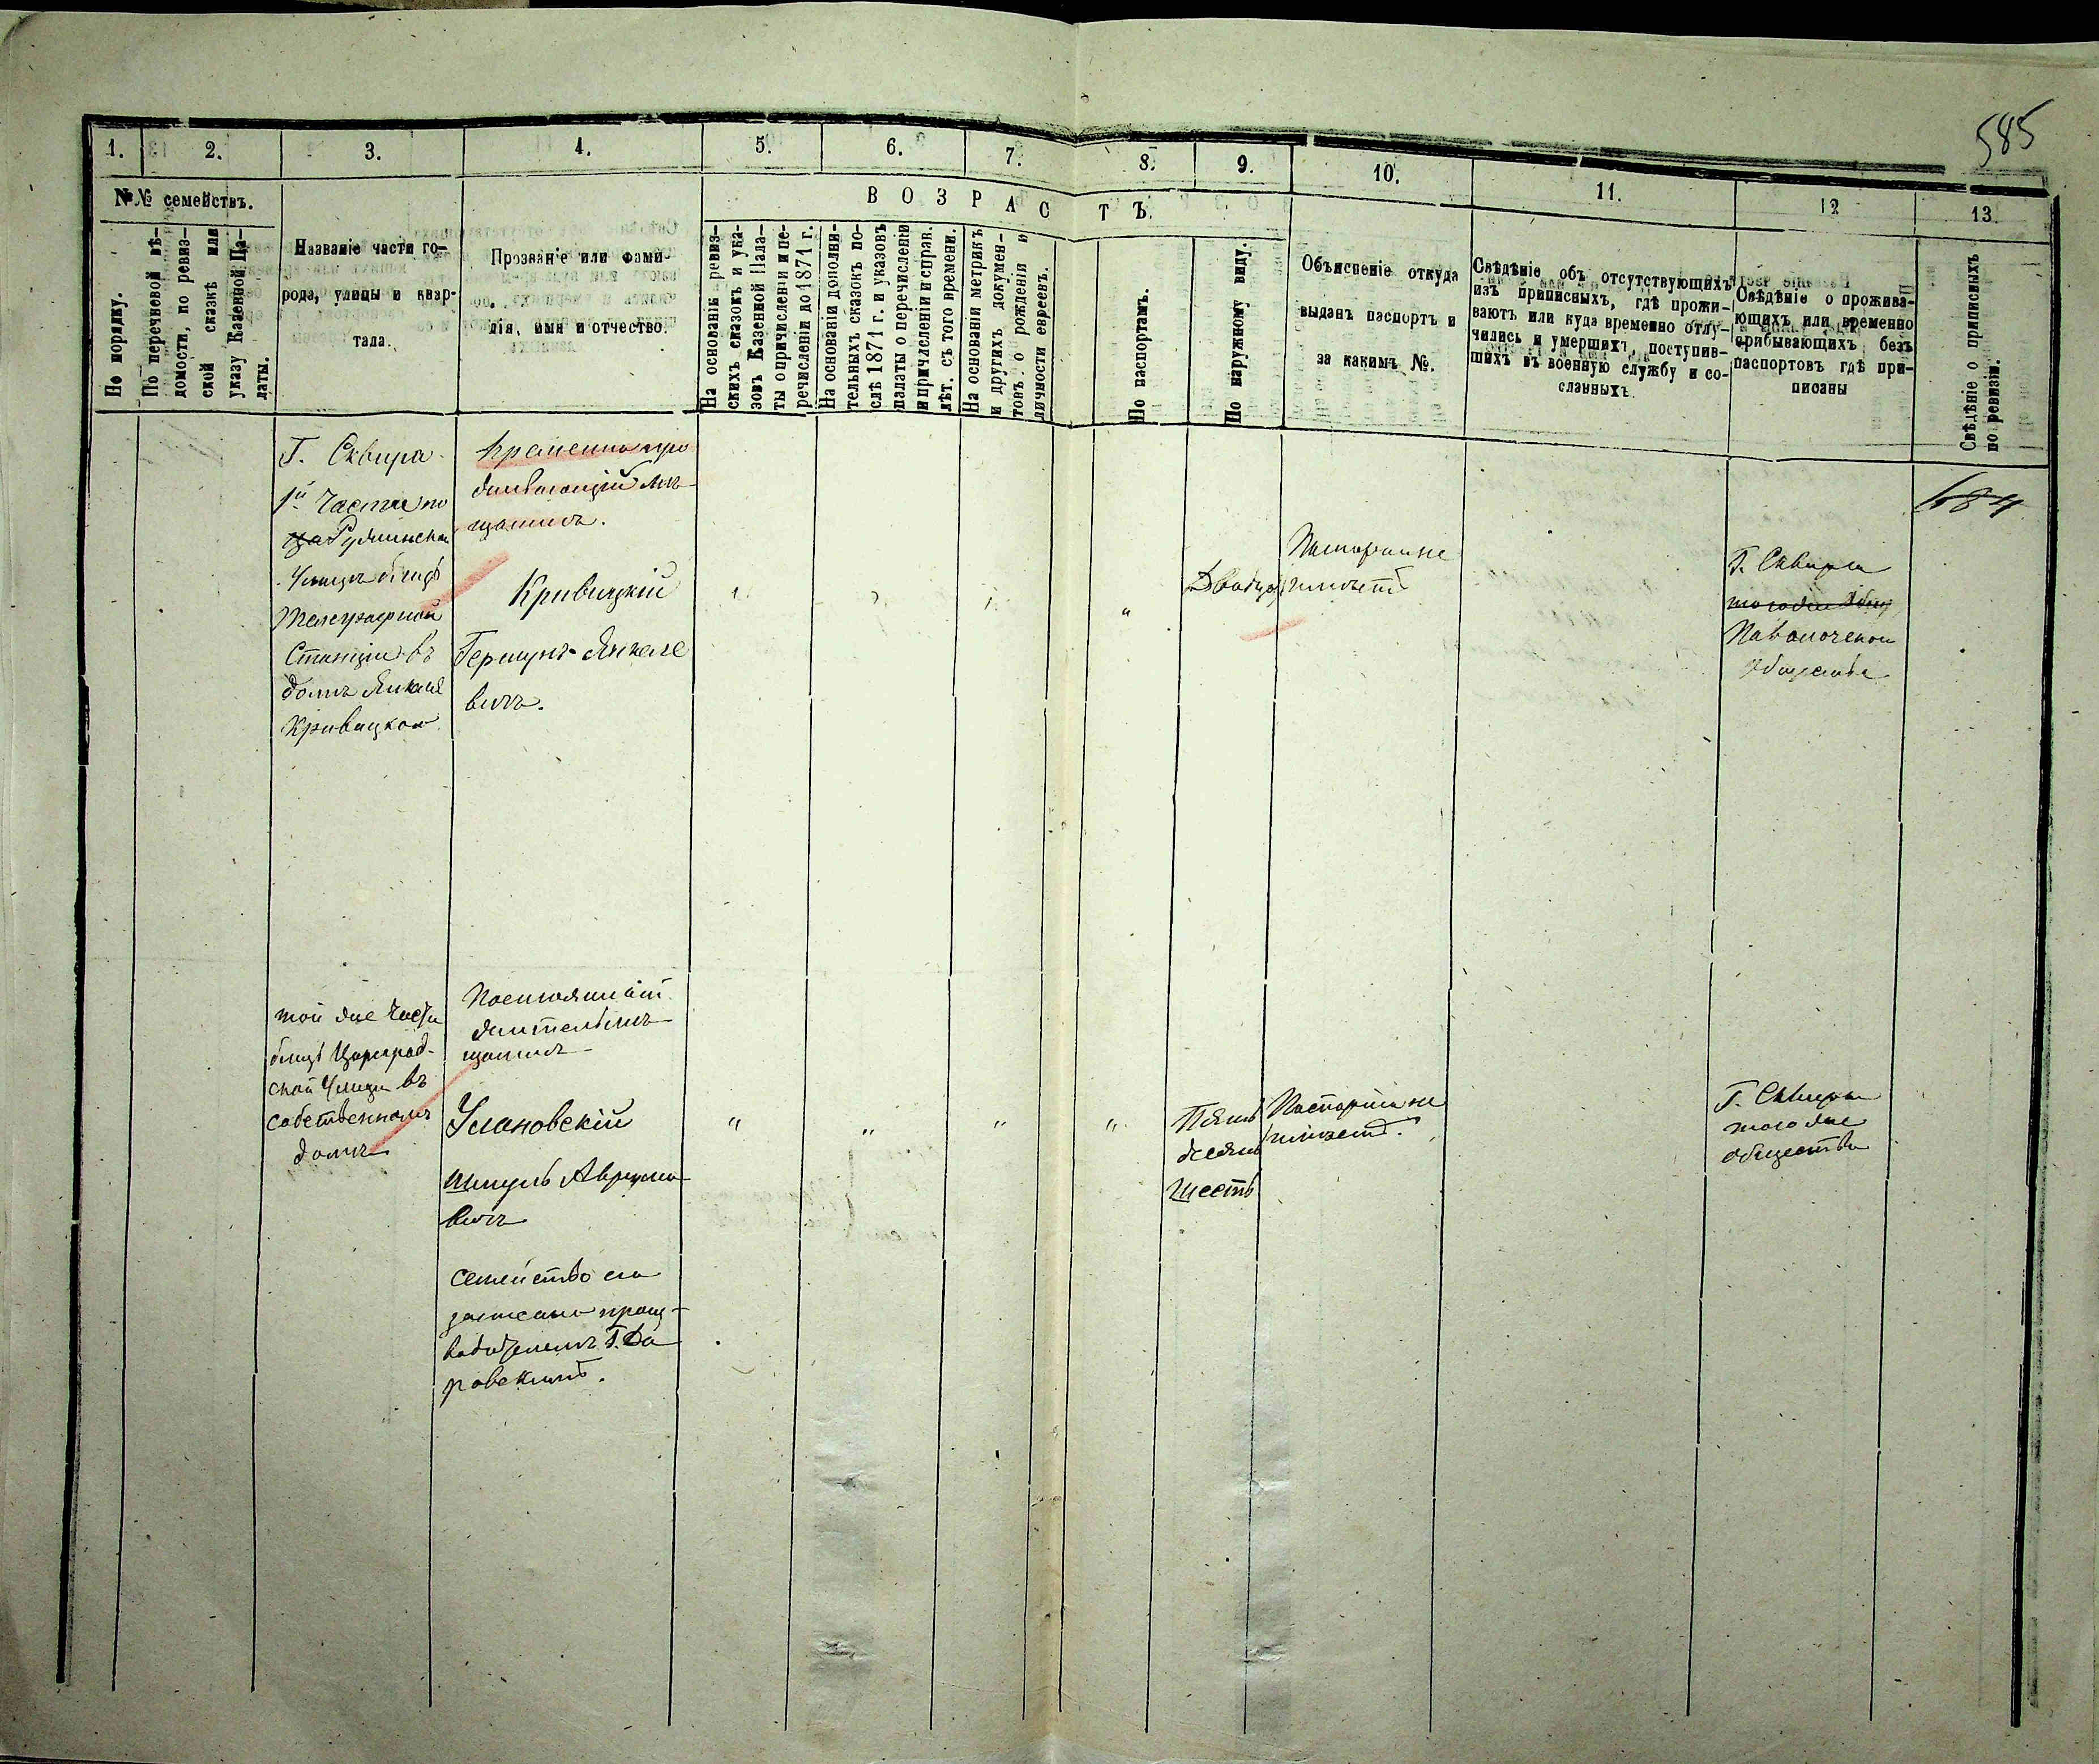 585
1.
2.
3.
4.
5.
6.
7.
8.
9.
10.
11.
12
13.
№№ семействъ.
По порядку.
По перечневой вѣ-
домости, по ревиз-
ской сказкѣ или
указу Казенной Па-
латы.
Названіе части го-
рода, улицы и квар-
тала.
Прозваніе или фами-
лія, имя и отчество.
ВОЗРАСТЪ.
На основаніи ревиз-
скихъ сказокъ и ука-
зовъ Казенной Пала-
ты о причисленіи и пе-
речисленіи до 1871 г.
На основаніи дополни-
тельныхъ сказокъ по-
слѣ 1871 г. и указовъ
палаты о перечисленіи
и причисленіи и справ.
лѣт. съ того времени.
На основаніи метрикъ
и другихъ докумен-
товъ о рожденіи и
личности евреевъ.
По паспортамъ.
По наружному виду.
Объясненіе откуда
выданъ паспортъ и
за какимъ №.
Свѣдѣніе объ отсутствующихъ
изъ приписныхъ, гдѣ прожи-
ваютъ или куда временно отлу-
чились и умершихъ, поступив-
шихъ въ военную службу и со-
сланныхъ.
Свѣдѣніе о прожива-
ющихъ или временно
прибывающихъ безъ
паспортовъ гдѣ при-
писаны
Свѣдѣніе о приписныхъ
по ревизіи.
Г. Сквира
1й Части по
Улицы близь
Телеграфной
Станціи въ
домѣ Янкеля
Кривицкого
Временно про
живающій мѣ-
щанинъ.
Кривицкій
Гершунъ Янкеле
вичъ.
"
Двадцать
Паспорта не
имѣетъ
Г. Сквира
того же Общ
Паволочского
Общества
684
той же Части
близь Цареград-
ской Улицы въ
собственномъ
домѣ
Постоянный
жительмѣ-
щанинъ
Улановскій
Шмуль Аврумо-
вичъ
семейство его
записано произ-
водителемъ Г. Да
ровскимъ.
"
"
"
"
Пять
десять
Шесть
Паспорта не
имѣетъ.
Г. Сквира
того же
общества